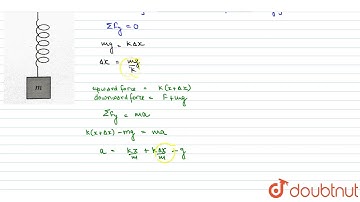 ΣFy = 0
mg = kΔx
Δx = mg/k
upward force = k(x+Δx)
downward force = F+mg
ΣFy = ma
k(x+Δx) - mg = ma
a = kx/m + kΔx/m - g
m
doubtnut